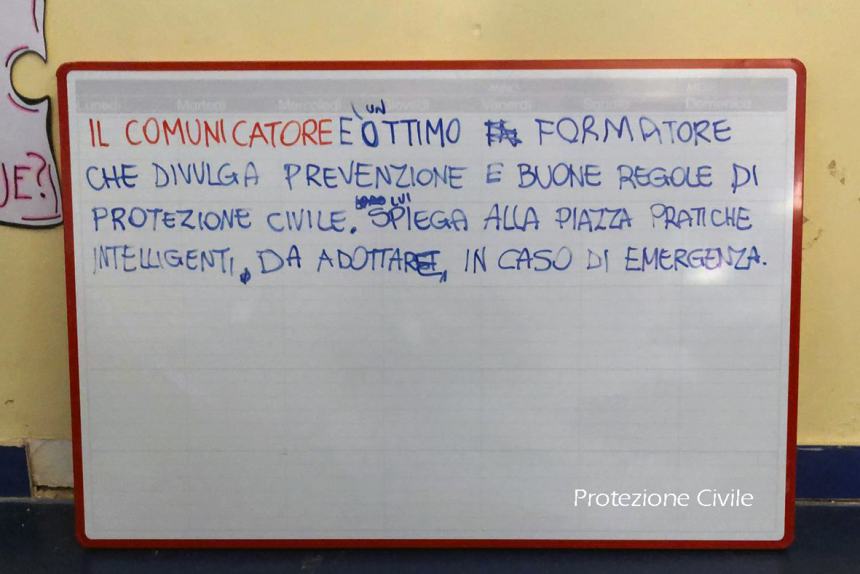 Lunedì Martedì Mercoledì Giovedì Venerdì Sabato Domenica
IL COMUNICATORE E UN OTTIMO FORMATORE
CHE DIVULGA PREVENZIONE E BUONE REGOLE DI
PROTEZIONE CIVILE. LUI SPIEGA ALLA PIAZZA PRATICHE
INTELLIGENTI, DA ADOTTARE, IN CASO DI EMERGENZA.
UE?
Protezione Civile